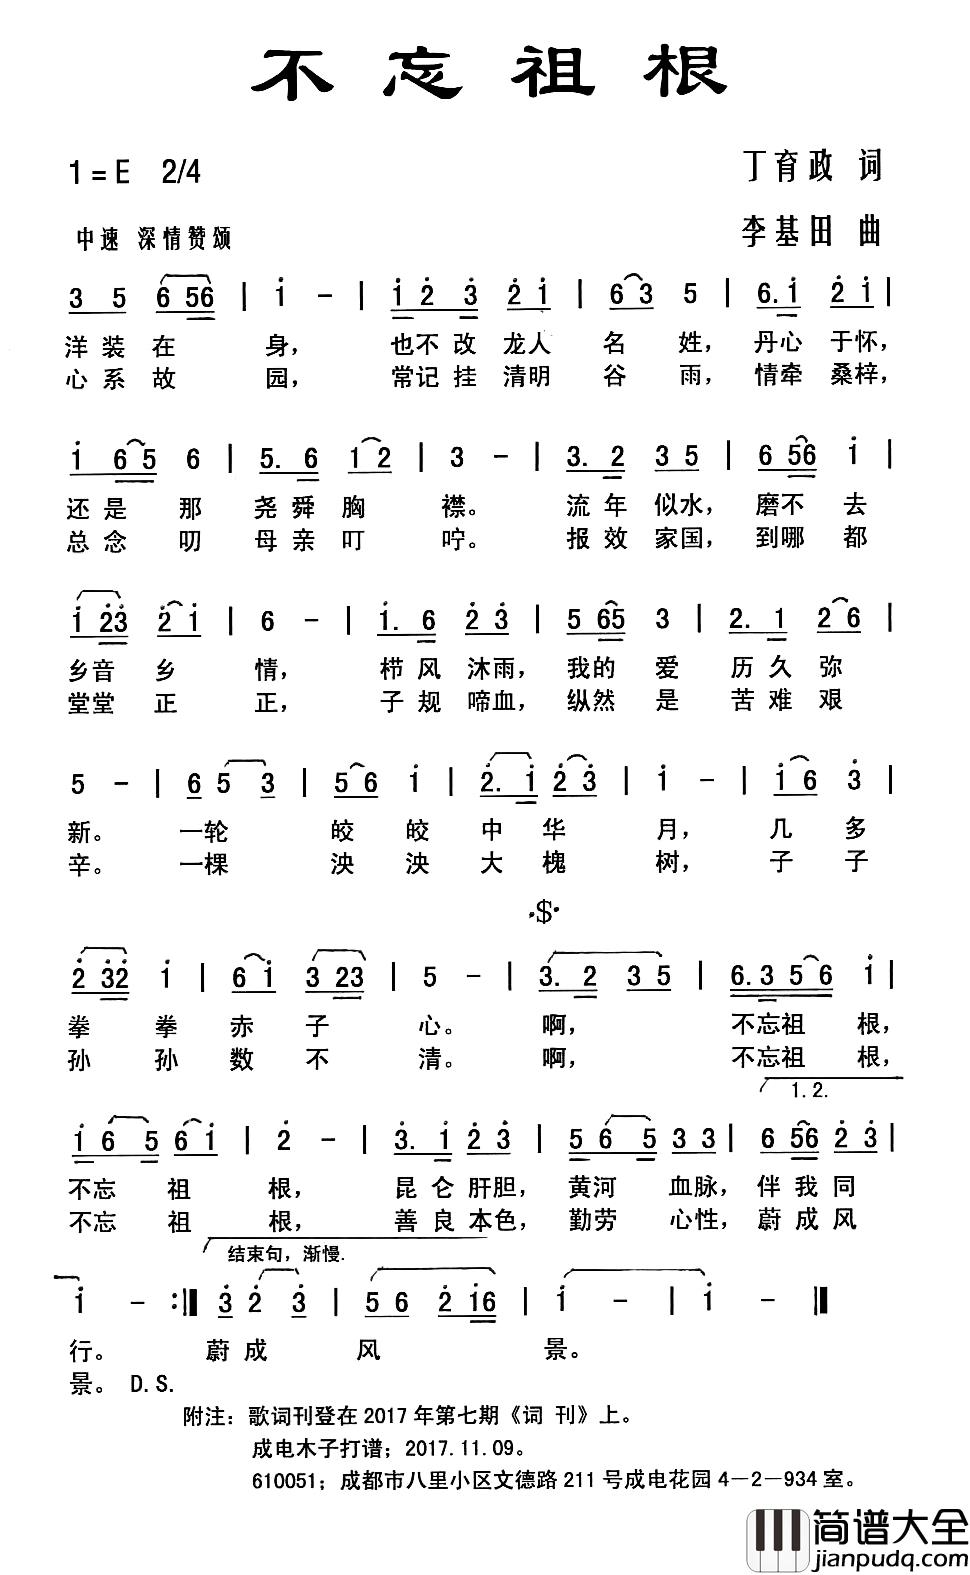 不忘祖根
1=E 2/4
丁育政 词
中速 深情赞颂
李基田 曲
3 5 6 56 | i - | i 2 3 2 i | 6 3 5 | 6. i 2 i |
洋装在 身， 也不改 龙人 名 姓， 丹心 于怀，
心系故 园， 常记挂 清明 谷 雨， 情牵 桑梓，
i 6 5 6 | 5. 6 1 2 | 3 - | 3. 2 3 5 | 6 56 i |
还是 那 尧舜胸 襟。 流年 似水， 磨不 去
总念 叨 母亲叮 咛。 报效 家国， 到哪 都
i 23 2 i | 6 - | i. 6 2 3 | 5 65 3 | 2. 1 2 6 |
乡音 乡 情， 栉风 沐雨， 我的 爱 历久弥
堂堂 正 正， 子规 啼血， 纵然 是 苦难艰
5 - | 6 5 3 | 5 6 i | 2. i 2 3 | i - | i 6 3 |
新。 一轮 皎 皎 中 华 月， 几 多
辛。 一棵 泱 泱 大 槐 树， 子 子
·$·
2 32 i | 6 i 3 23 | 5 - | 3. 2 3 5 | 6.3 5 6 i |
拳 拳 赤 子 心。 啊， 不忘祖 根，
孙 孙 数 不 清。 啊， 不忘祖 根，
1.2.
i 6 5 6 i | 2 - | 3. i 2 3 | 5 6 5 3 3 | 6 56 2 3 |
不忘 祖 根， 昆仑肝胆， 黄河 血脉， 伴我同
不忘 祖 根， 善良本色， 勤劳 心性， 蔚成风
结束句，渐慢.
i - :‖ 3 2 3 | 5 6 2 i6 | i - | i - ‖
行。 蔚成 风 景。
景。 D.S.
附注：歌词刊登在2017年第七期《词 刊》上。
成电木子打谱；2017.11.09。
610051；成都市八里小区文德路211号成电花园4－2－934室。
简谱大全
jianpudq.com